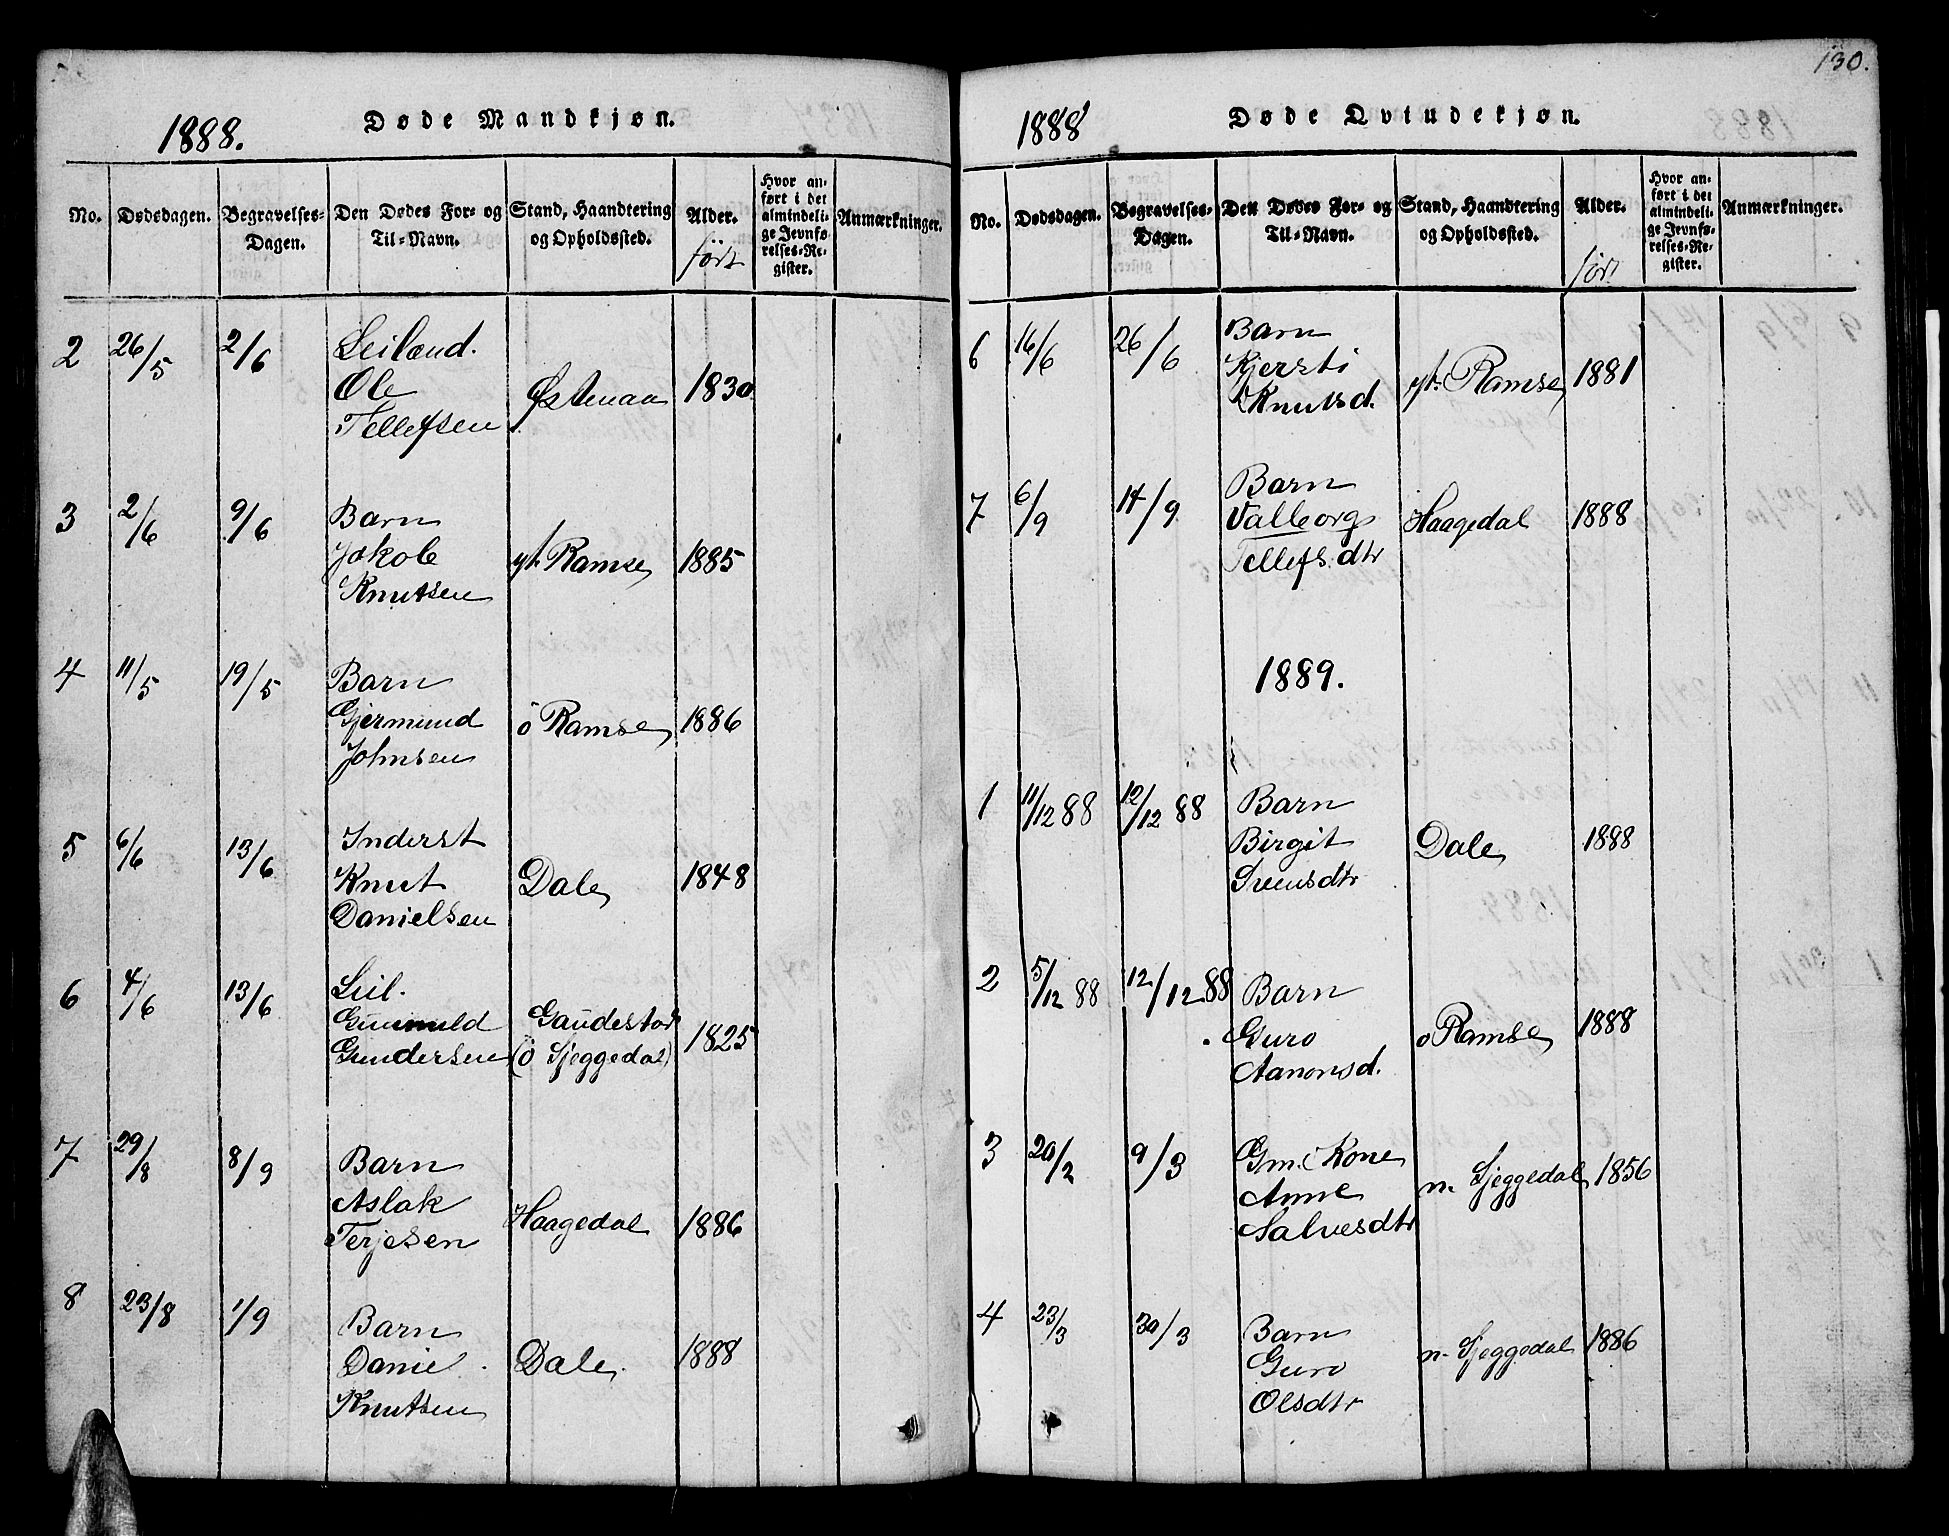 1888. Døde Mandkjøn.
No. Dødsdagen. Begravelses-Dagen. Den Dødes For- og Til-Navn. Stand, Haandtering og Opholdssted. Alder. født Hvor anført i det almindelige Jevnførelses-Register. Anmærkninger.
2 26/5 2/6 Leilænd.
Ole Østenaa 1830
Tellefsen
3 2/6 9/6 Barn
Jakob yt. Ramse 1885
Knutsen
4 11/5 19/5 Barn
Gjermund ö Ramse 1886
Johnsen
5 6/6 13/6 Inderst
Knut Dale 1848
Danielsen
6 4/6 13/6 Leil.
Gunnuld Gaudestad
Gundersen (ö Sjeggedal) 1825
7 29/8 8/9 Barn
Aslak Haagedal 1886
Terjesen
8 23/8 1/9 Barn
Daniel Dale. 1888
Knutsen
130.
1888 Døde Qvindekjøn.
No. Dødsdagen. Begravelses-Dagen. Den Dødes For- og Til-Navn. Stand, Haandtering og Opholdssted. Alder. født Hvor anført i det almindelige Jevnførelses-Register. Anmærkninger.
6 16/6 26/6 Barn
Kjersti yt. Ramse 1881
Knutsd.
7 6/9 14/9 Barn
Valborg Haagedal 1888
Tellefs.dtr
1889.
1 11/12 88 12/12 88 Barn
Birgit Dale 1888
Svensdtr
2 5/12 88 12/12 88 Barn
Guro o Ramse 1888
Aanonsd.
3 20/2 9/3 Gm. Kone
Anne n. Sjeggedal 1856
Salvesdtr
4 23/3 30/3 Barn
Guro n. Sjeggedal 1886
Olsdtr